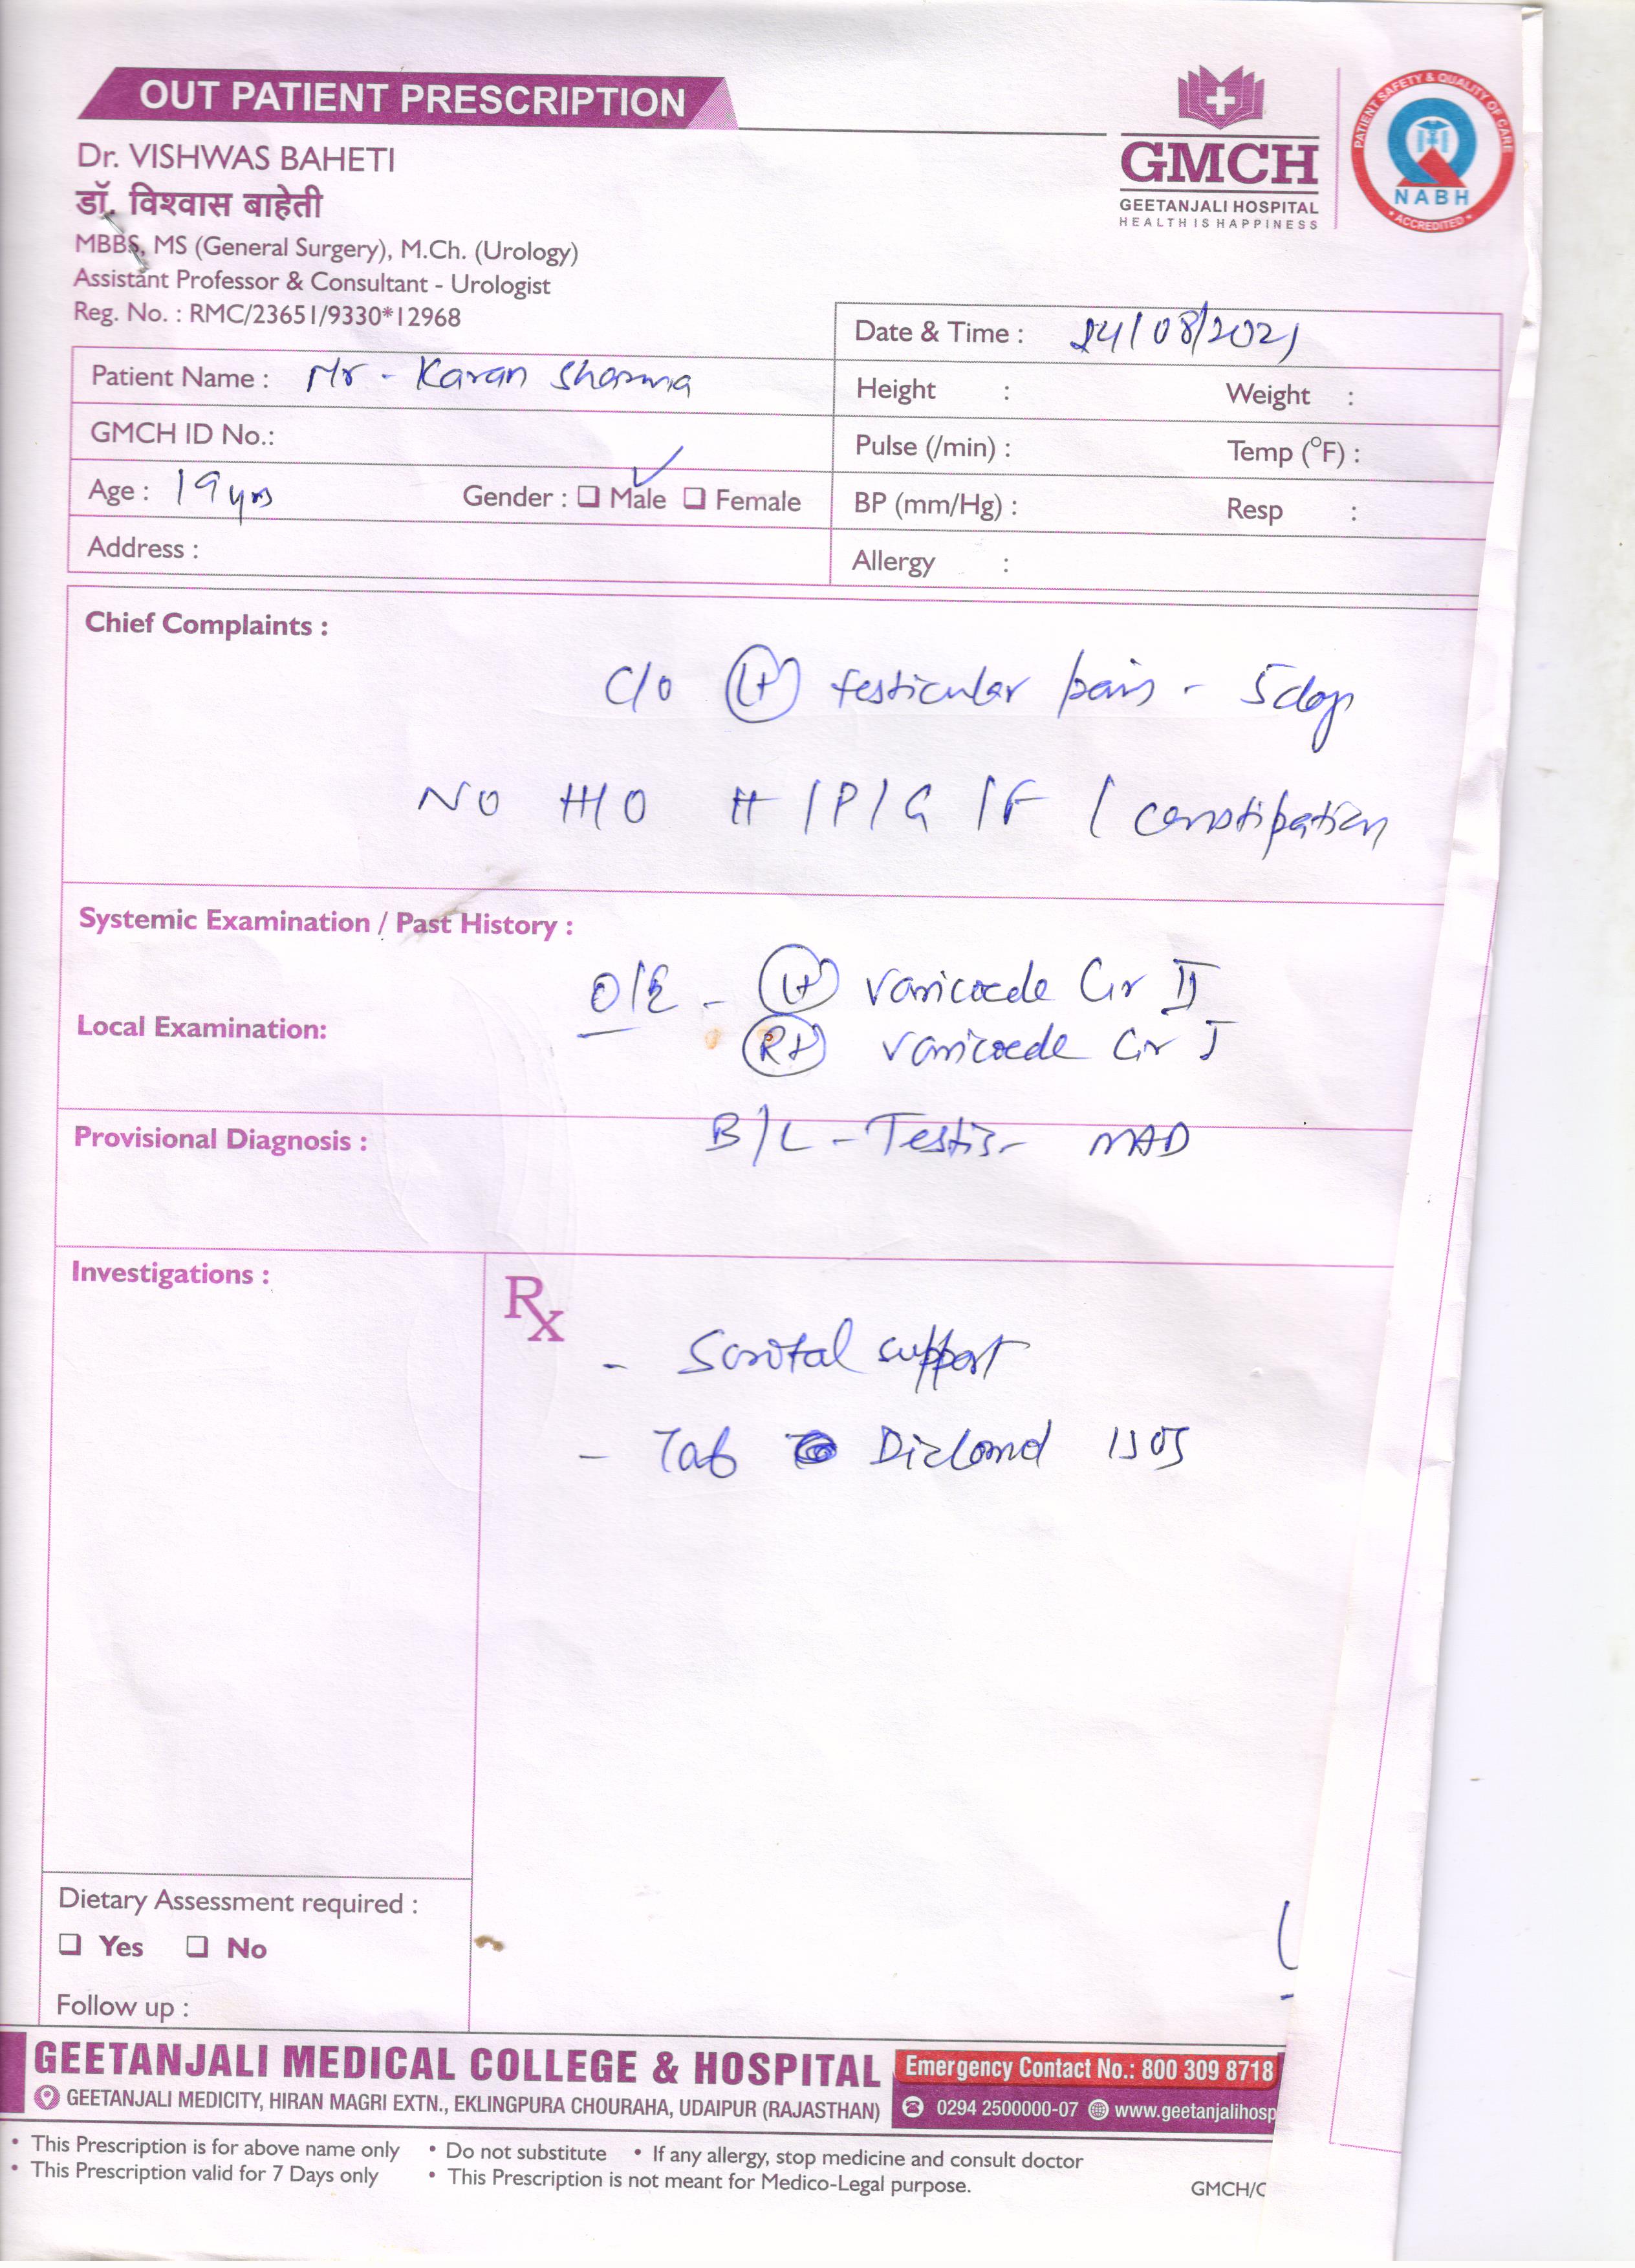 OUT PATIENT PRESCRIPTION
GMCH
GEETANJALI HOSPITAL
HEALTH IS HAPPINESS
PATIENT SAFETY & QUALITY OF CARE
NABH
• ACCREDITED •
Dr. VISHWAS BAHETI
डॉ. विश्वास बाहेती
MBBS, MS (General Surgery), M.Ch. (Urology)
Assistant Professor & Consultant - Urologist
Reg. No. : RMC/23651/9330*12968
Date & Time : 24/08/2021
Patient Name : Mr - Karan Sharma
Height : Weight :
GMCH ID No.:
Pulse (/min) : Temp (°F) :
Age : 19 yrs Gender : ❑ Male ✓ ❑ Female
BP (mm/Hg) : Resp :
Address :
Allergy :
Chief Complaints :
C/O Lt testicular pain - 5 days
NO H/O H/P/G/F/constipation
Systemic Examination / Past History :
O/E - Lt varicocele Gr II
Local Examination:
Rt varicocele Gr I
Provisional Diagnosis :
B/L - Testis - NAD
Investigations :
Rx
- Scrotal support
- Tab
Dietary Assessment required :
❑ Yes ❑ No
Follow up :
GEETANJALI MEDICAL COLLEGE & HOSPITAL
GEETANJALI MEDICITY, HIRAN MAGRI EXTN., EKLINGPURA CHOURAHA, UDAIPUR (RAJASTHAN)
Emergency Contact No.: 800 309 8718
0294 2500000-07 www.geetanjalihosp
• This Prescription is for above name only • Do not substitute • If any allergy, stop medicine and consult doctor
• This Prescription valid for 7 Days only • This Prescription is not meant for Medico-Legal purpose.
GMCH/C